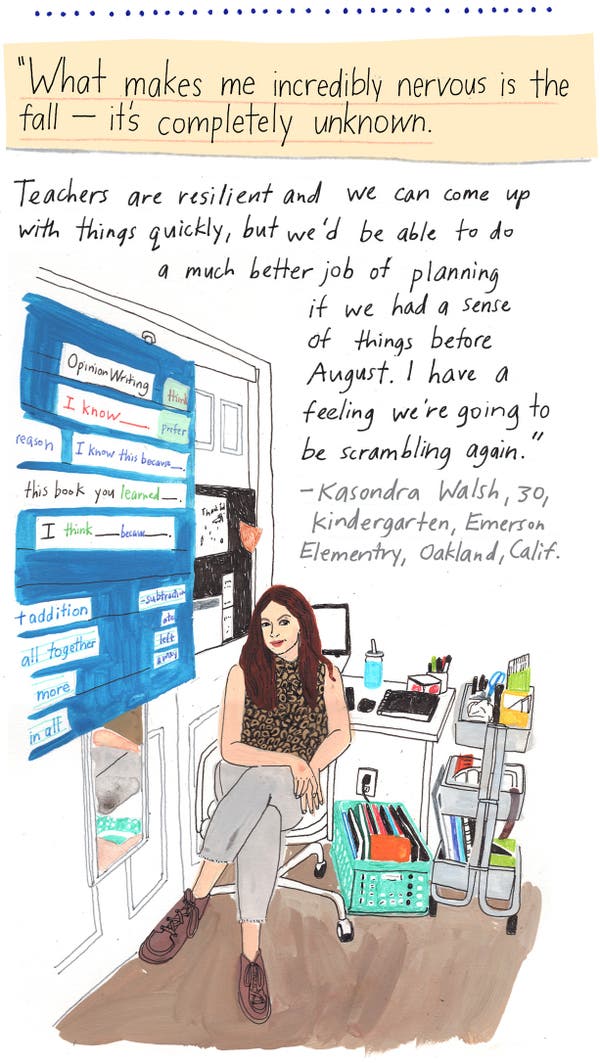 "What makes me incredibly nervous is the
fall — it's completely unknown.
Teachers are resilient and we can come up
with things quickly, but we'd be able to do
a much better job of planning
if we had a sense
of things before
August. I have a
feeling we're going to
be scrambling again."
– Kasondra Walsh, 30,
Kindergarten, Emerson
Elementry, Oakland, Calif.
Opinion Writing
think
I know___.
prefer
reason
I know this because__.
this book you learned__.
I think ___because___.
+addition
-subtraction
all together
left
more
in all